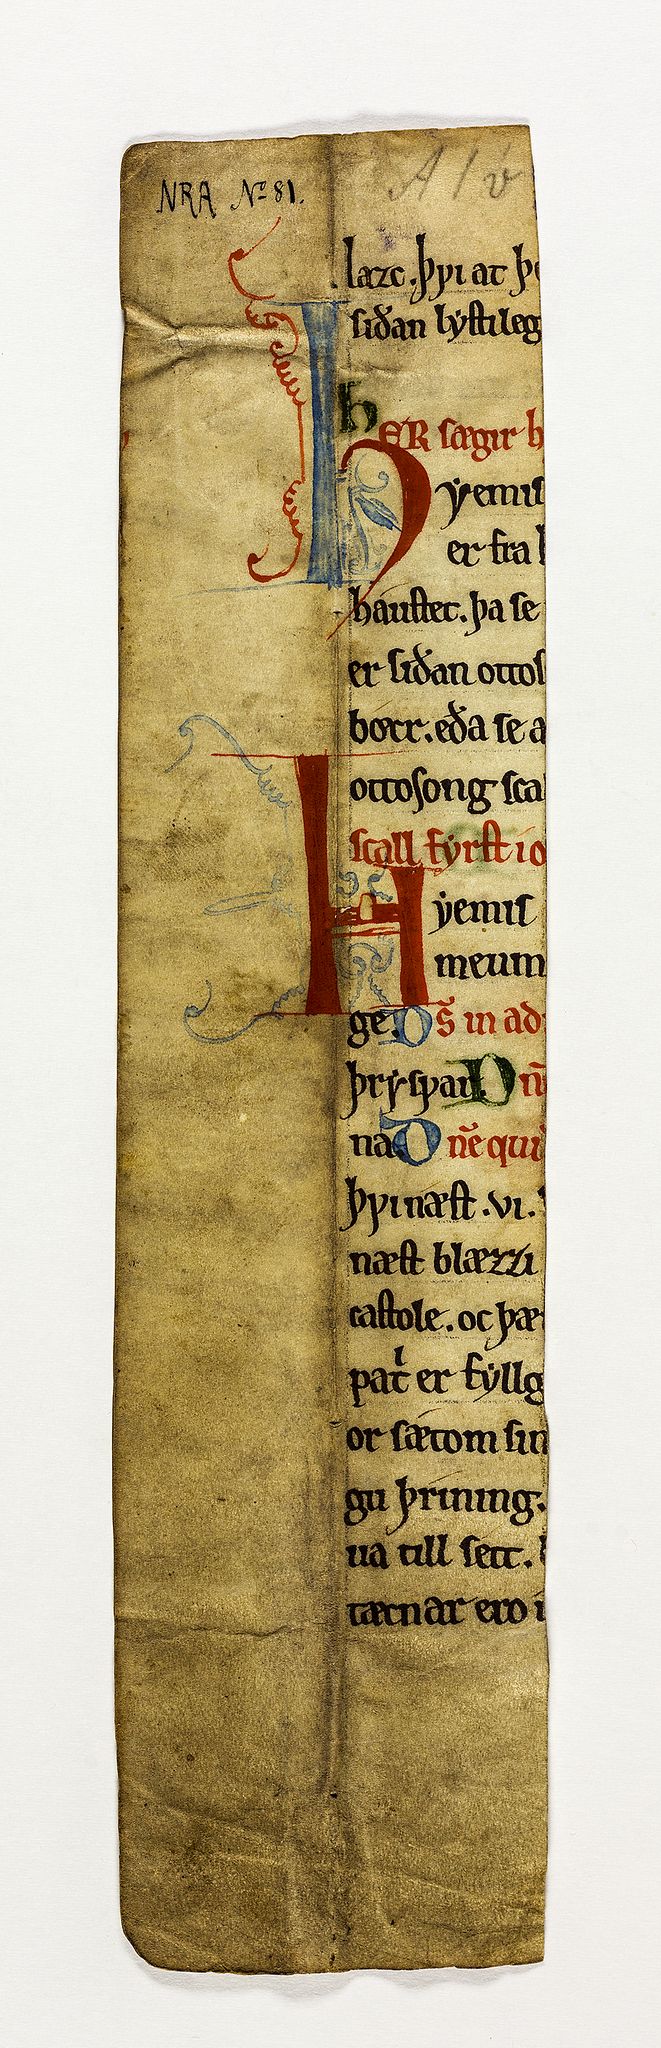 NRA No 81.
A 1 v
læzc. þꝩi at þe
siðan lẏstileg
hER sæᵹir h
hẏemis
er fra
haustet. þa se
er siðan ottos
boct. eða se a
ottosong sca
scall fẏrst io
Hẏemis
meum
ge. Ds̄ in ad
þrẏsꝩar Dn̄
na Dn̄e qui
þꝩi næst .vi.
næst blæzzi
castole. oc þæ
pat er fẏllg
or sætom sin
gu þrining.
ua till sett.
tæcnar ero i